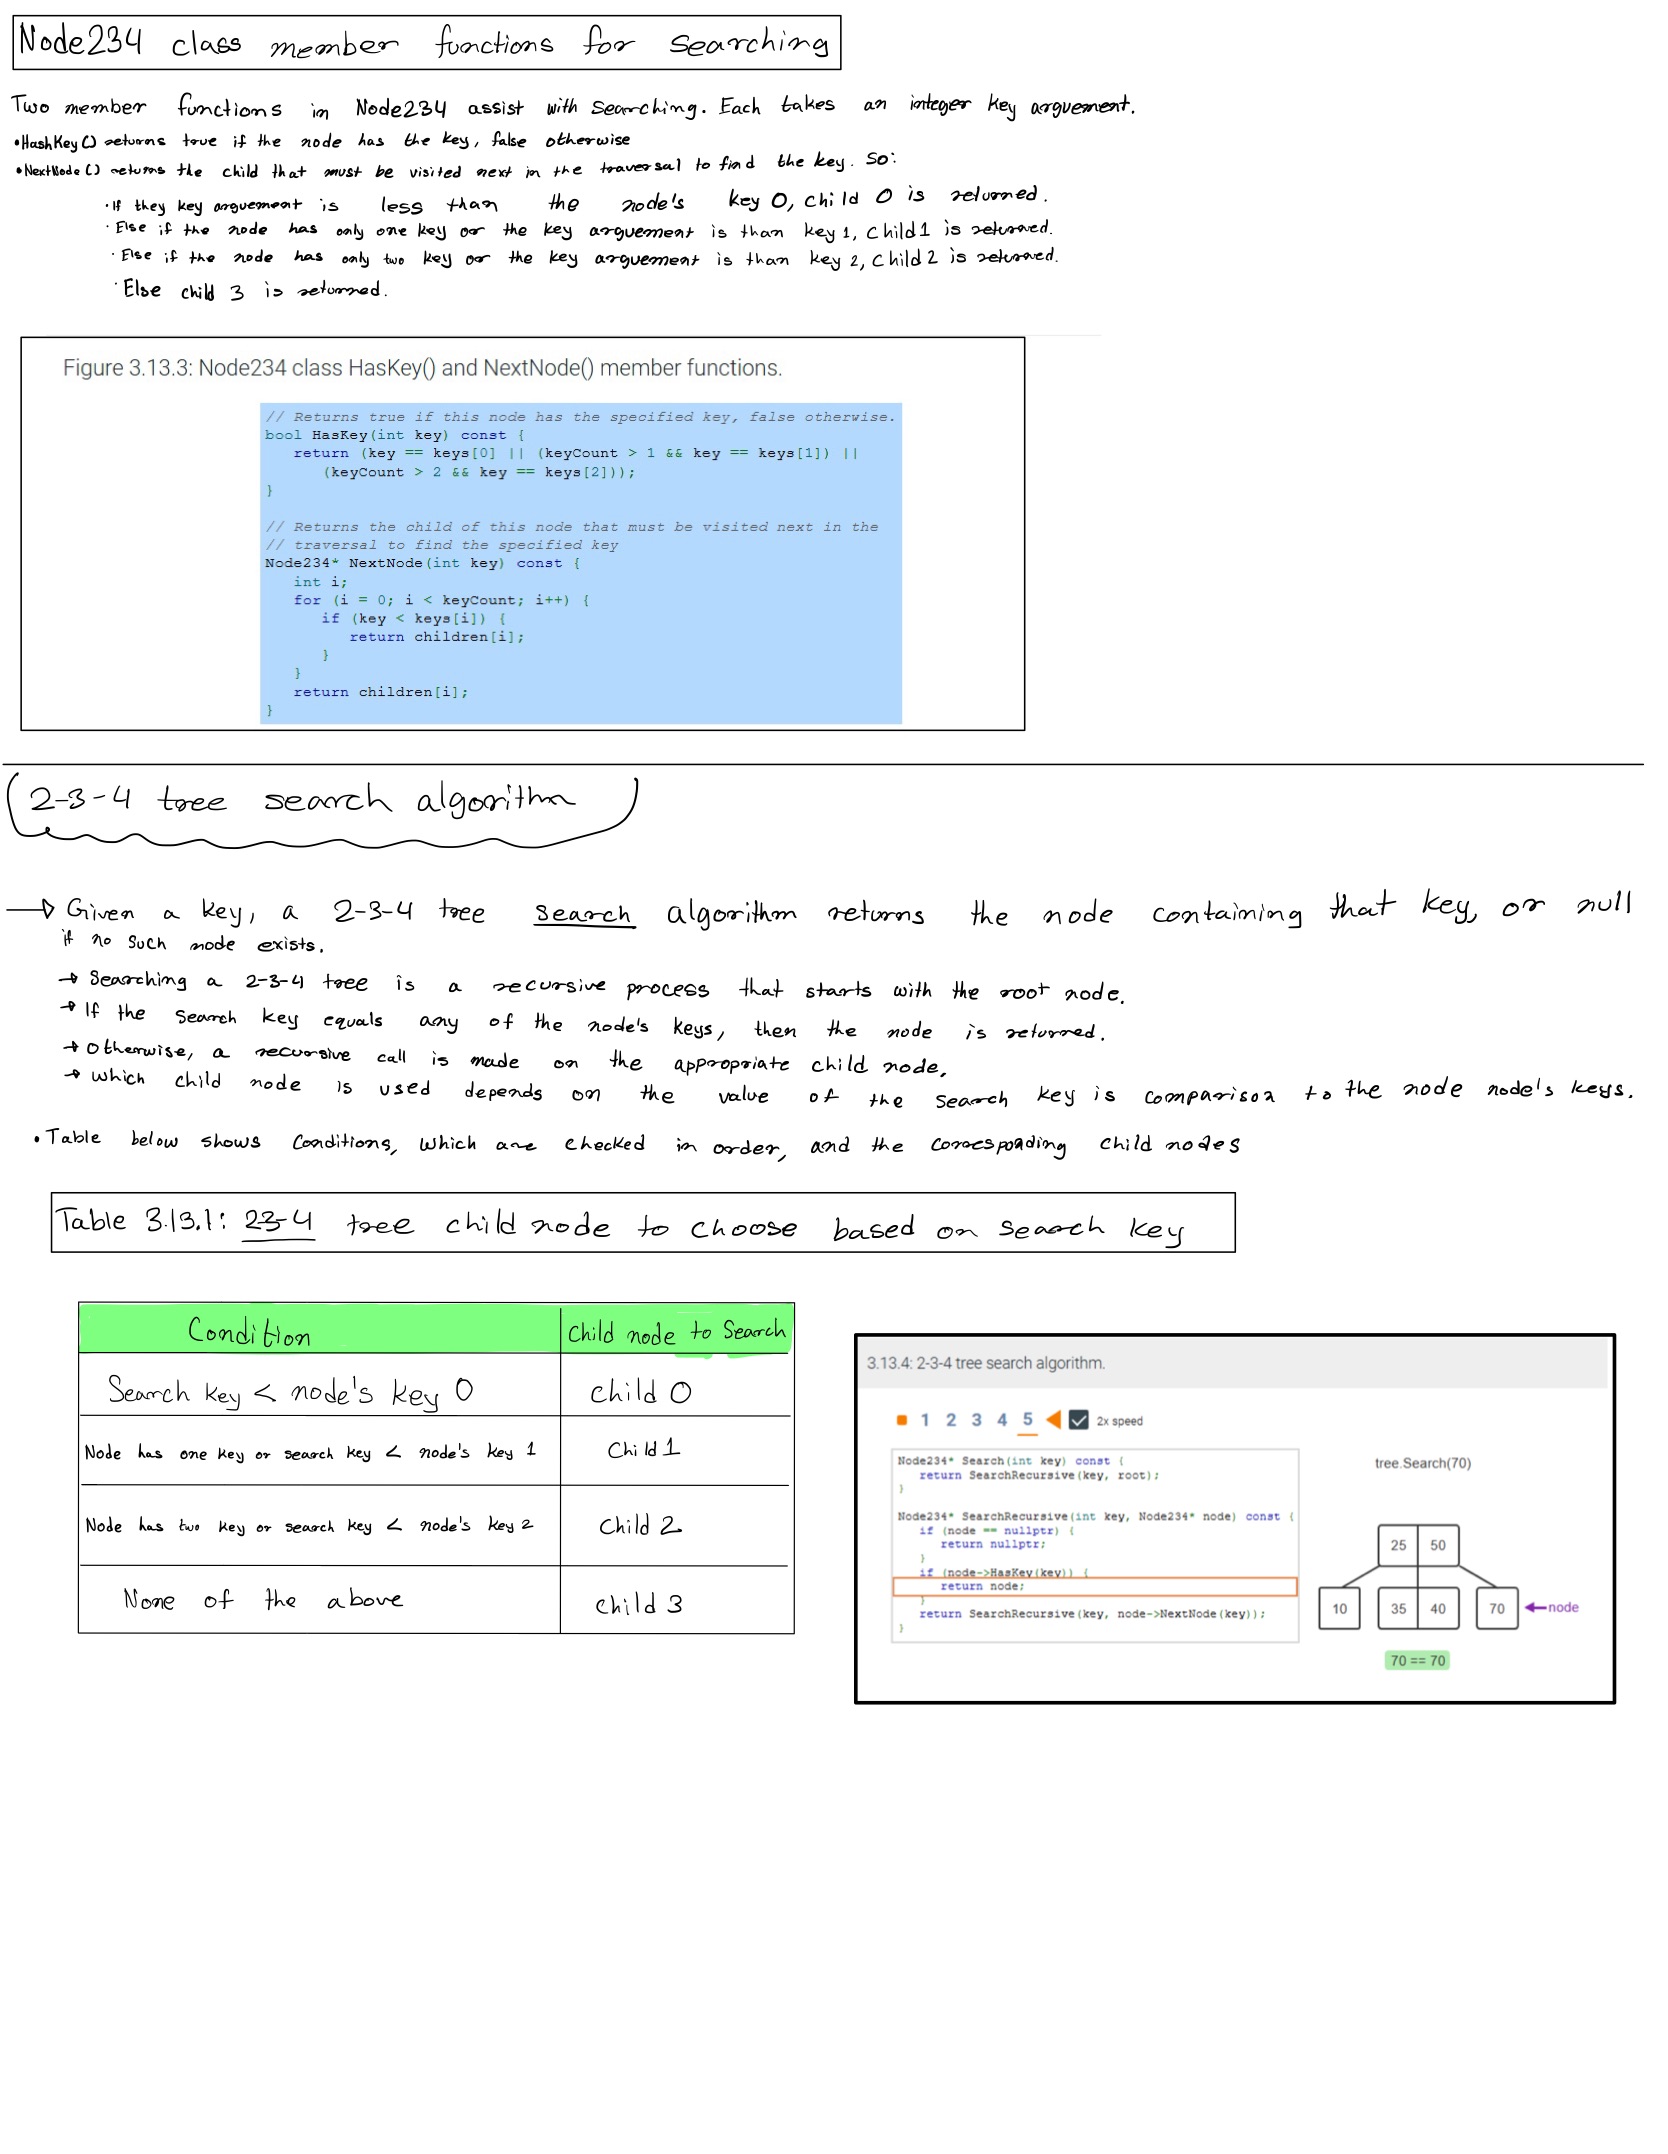 Node234 class member functions for searching
Two member functions in Node234 assist with searching. Each takes an integer key arguement.
•HashKey() returns true if the node has the key, false otherwise
•NextNode() returns the child that must be visited next in the traversal to find the key. So:
·If they key arguement is less than the node's key 0, child 0 is returned.
·Else if the node has only one key or the key arguement is than key 1, child 1 is returned.
·Else if the node has only two key or the key arguement is than key 2, child 2 is returned.
·Else child 3 is returned.
Figure 3.13.3: Node234 class HasKey() and NextNode() member functions.
// Returns true if this node has the specified key, false otherwise.
bool HasKey(int key) const {
return (key == keys[0] || (keyCount > 1 && key == keys[1]) ||
(keyCount > 2 && key == keys[2]));
}
// Returns the child of this node that must be visited next in the
// traversal to find the specified key
Node234* NextNode(int key) const {
int i;
for (i = 0; i < keyCount; i++) {
if (key < keys[i]) {
return children[i];
}
}
return children[i];
}
2-3-4 tree search algorithm
→ Given a key, a 2-3-4 tree search algorithm returns the node containing that key, or null
if no such node exists.
→ Searching a 2-3-4 tree is a recursive process that starts with the root node.
→ If the search key equals any of the node's keys, then the node is returned.
→ Otherwise, a recursive call is made on the appropriate child node,
→ which child node is used depends on the value of the search key is comparison to the node node's keys.
• Table below shows conditions, which are checked in order, and the corresponding child nodes
Table 3.13.1: 23-4 tree child node to choose based on search key
Condition Child node to Search
Search key < node's key 0 child 0
Node has one key or search key < node's key 1 Child 1
Node has two key or search key < node's key 2 Child 2
None of the above child 3
3.13.4: 2-3-4 tree search algorithm.
1 2 3 4 5 2x speed
Node234* Search(int key) const {
return SearchRecursive(key, root);
}
Node234* SearchRecursive(int key, Node234* node) const {
if (node == nullptr) {
return nullptr;
}
if (node->HasKey(key)) {
return node;
}
return SearchRecursive(key, node->NextNode(key));
}
tree.Search(70)
25 50
10 35 40 70 node
70 == 70